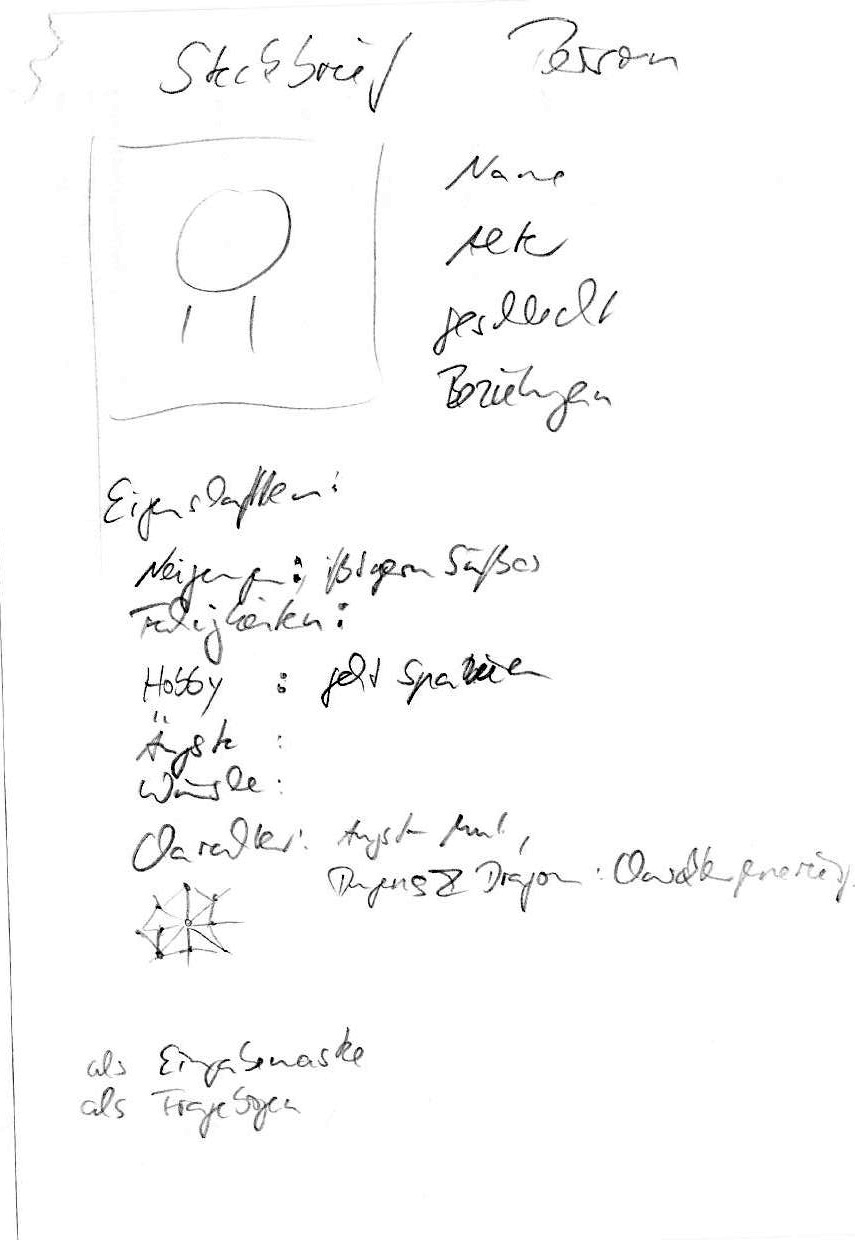 Steckbrief Person
Name
Alter
Geschlecht
Beziehungen
Eigenschaften:
Neigungen: ißt gern Süßes
Fähigkeiten:
Hobby : geht Spazieren
Ängste :
Wünsche:
Charakter: Angst Mut,
Dungeons & Dragon : Charaktergenerierung
als Eingabemaske
als Fragebogen